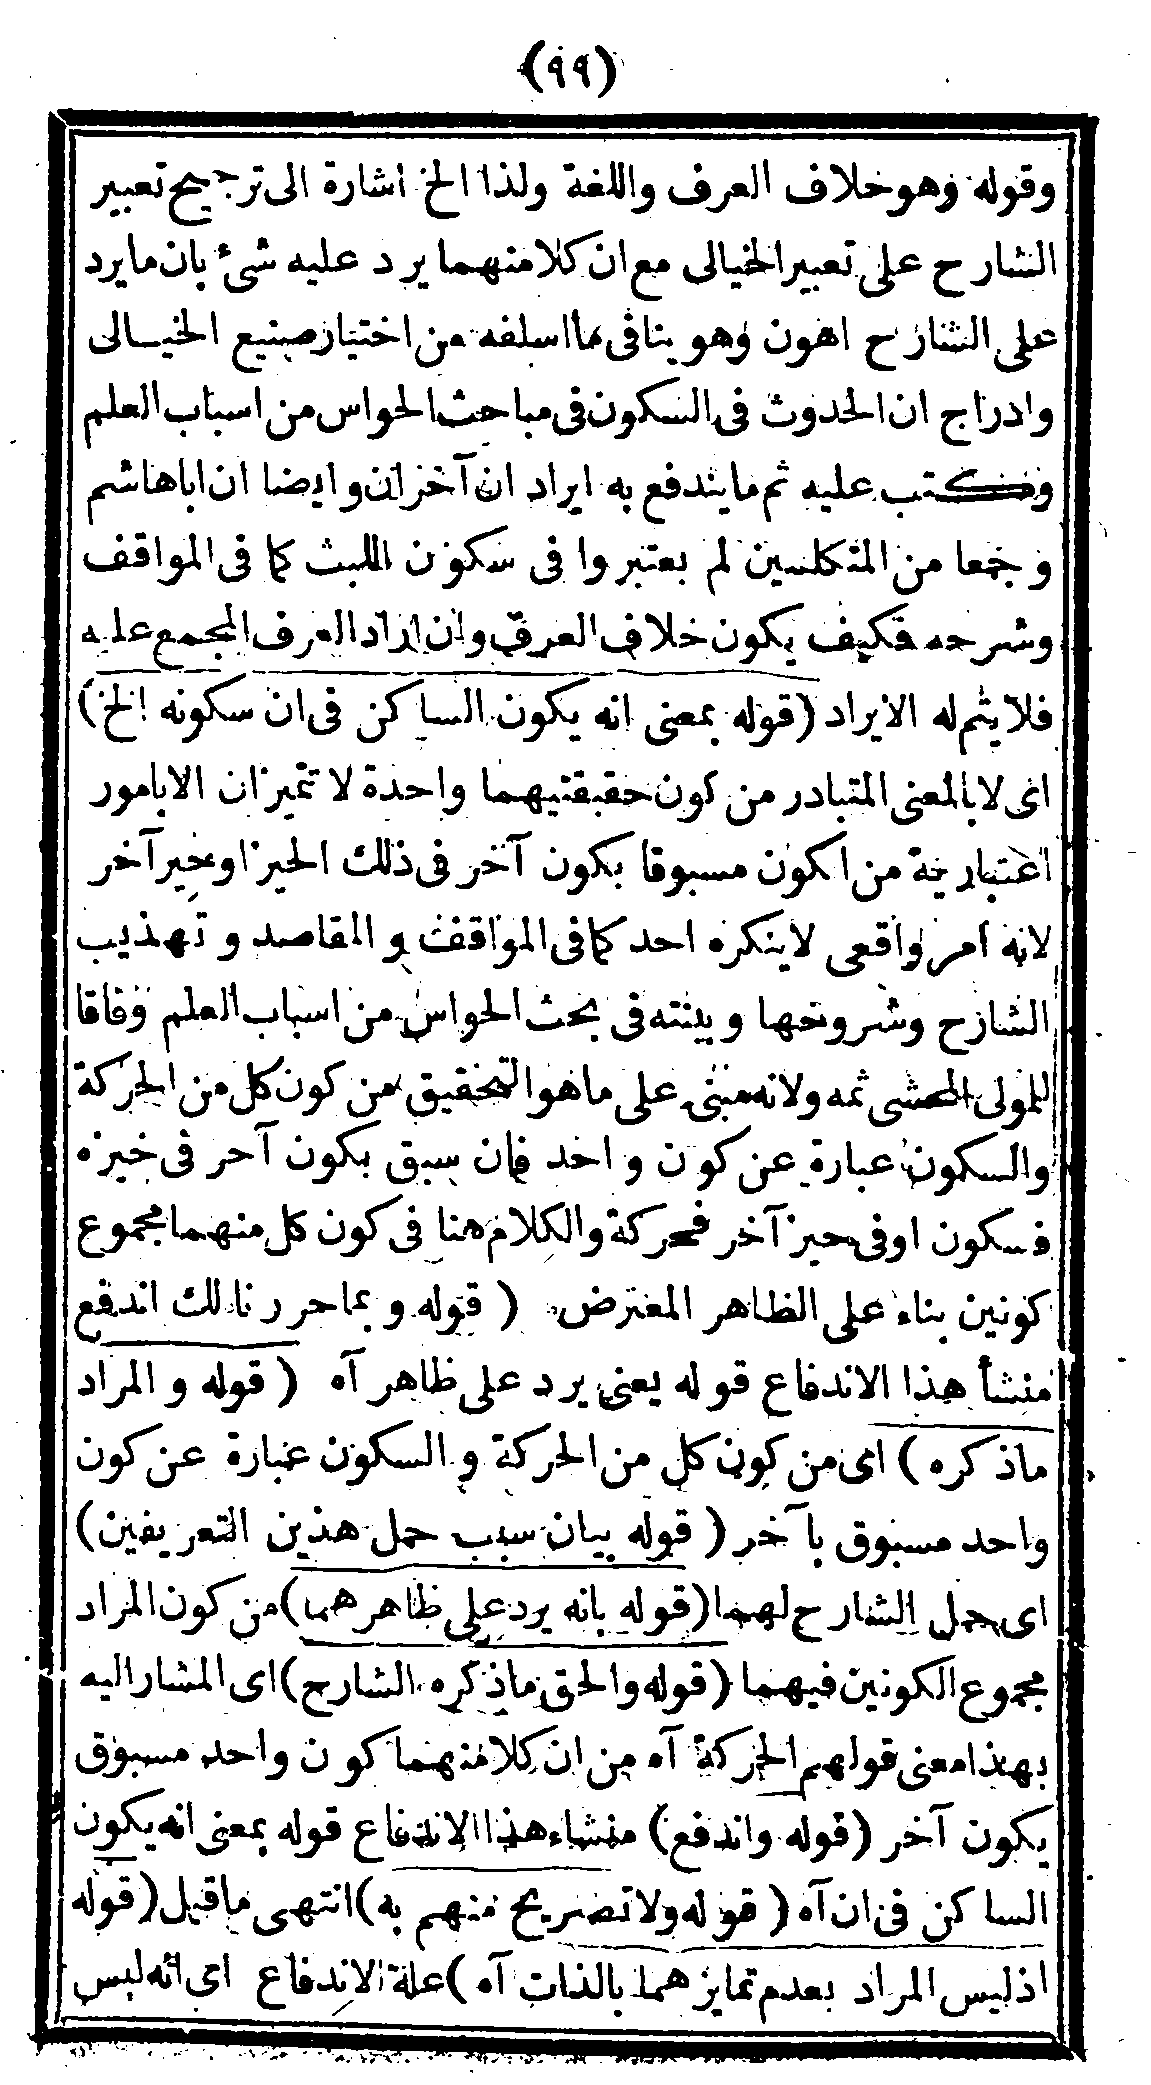 (٩٩)
وقوله وهو خلاف العرف واللغة ولذا الخ اشارة الى ترجيح تعبير
الشارح على تعبير الخيالى مع ان كلا منهما يرد عليه شئ بان ما يرد
على الشارح اهون وهو ينافى ما اسلفه من اختيار صنيع الخيالى
وادراج ان الحدوث فى السكون فى مباحث الحواس من اسباب العلم
عليه ثم ما يندفع به ايراد ان آخران وايضا ان اباهاشم
وجمعا من المتكلمين لم يعتبروا فى سكون اللبث كما فى المواقف
وشرحه فكيف يكون خلاف العرف وان اراد العرف المجمع عليه
فلا يتم له الايراد (قوله بمعنى انه يكون الساكن فى ان سكونه الخ)
اى لا بالمعنى المتبادر من كون حقيقتيهما واحدة لا تتميزان الا بامور
اعتبارية من اكون مسبوقا بكون آخر فى ذلك الحيز او حيز آخر
لانه امر واقعى لا ينكره احد كما فى المواقف والمقاصد وتهذيب
الشارح وشروحها وبينته فى بحث الحواس من اسباب العلم وفاقا
للمولى المحشى ثمه ولانه مبنى على ما هو التحقيق من كون كل من الحركة
والسكون عبارة عن كون واحد فان سبق بكون آخر فى حيزه
فسكون او فى حيز آخر فحركة والكلام هنا فى كون كل منهما مجموع
كونين بناء على الظاهر المعترض (قوله وبما حررنا لك اندفع
منشأ هذا الاندفاع قوله يعنى يرد على ظاهر آه (قوله والمراد
ما ذكره) اى من كون كل من الحركة والسكون عبارة عن كون
واحد مسبوق بآخر (قوله بيان سبب حمل هذين التعريفين)
اى حمل الشارح لهما (قوله بانه يرد على ظاهرهما) من كون المراد
مجموع الكونين فيهما (قوله والحق ما ذكره الشارح) اى المشار اليه
بهذا معنى قولهم الحركة آه من ان كلا منهما كون واحد مسبوق
بكون آخر (قوله واندفع) منشاء هذا الاندفاع قوله بمعنى انه يكون
الساكن فى ان آه (قوله ولا تصريح منهم به) انتهى ما قيل (قوله
اذ ليس المراد بعدم تمايزهما بالذات آه) علة الاندفاع اى انه ليس